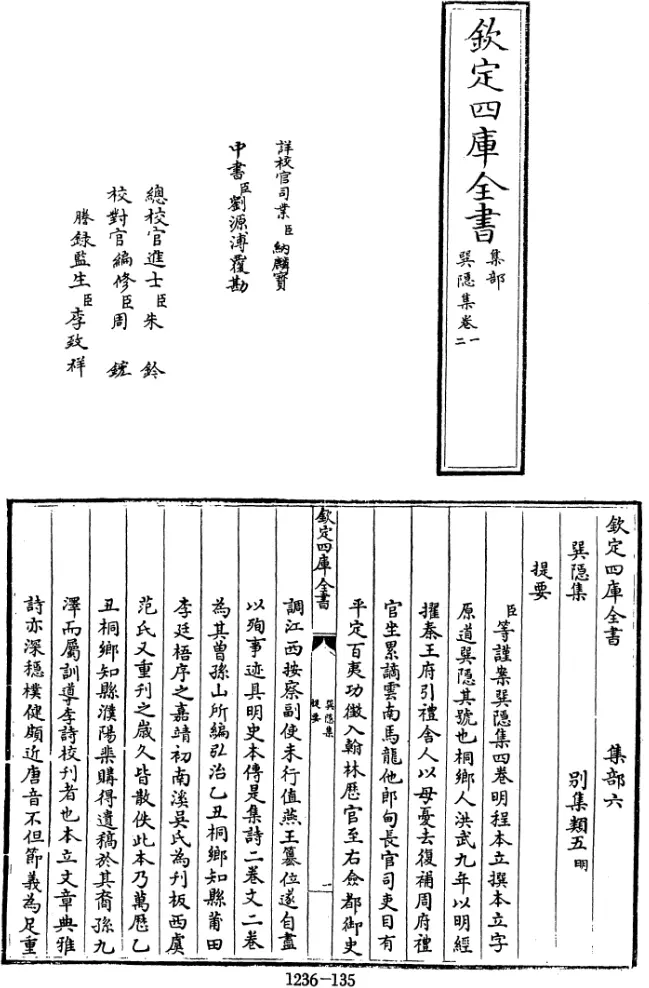 欽定四庫全書
集部
巽隱集卷一
二
詳校官司業臣納麟寶
中書臣劉源溥覆勘
總校官進士臣朱鈐
校對官編修臣周鋐
謄錄監生臣李致祥
欽定四庫全書 集部六
巽隱集 别集類五明
提要
臣等謹案巽隱集四巻明程本立撰本立字
原道巽隱其號也桐鄉人洪武九年以明經
擢秦王府引禮舍人以母憂去復補周府禮
官坐累謫雲南馬龍他郎甸長官司吏目有
平定百夷功徵入翰林歷官至右僉都御史
欽定四庫全書
巽隱集
提要
一
調江西按察副使未行值燕王簒位遂自盡
以殉事迹具明史本傳是集詩二巻文二巻
為其曽孫山所編弘治乙丑桐鄉知縣莆田
李廷梧序之嘉靖初南溪吳氏為刋板西虞
范氏又重刋之嵗久皆散佚此本乃萬歷乙
丑桐鄉知縣濮陽棐購得遺稿於其裔孫九
澤而屬訓導李詩校刋者也本立文章典雅
詩亦深穩樸健頗近唐音不但節義為足重
1236-135